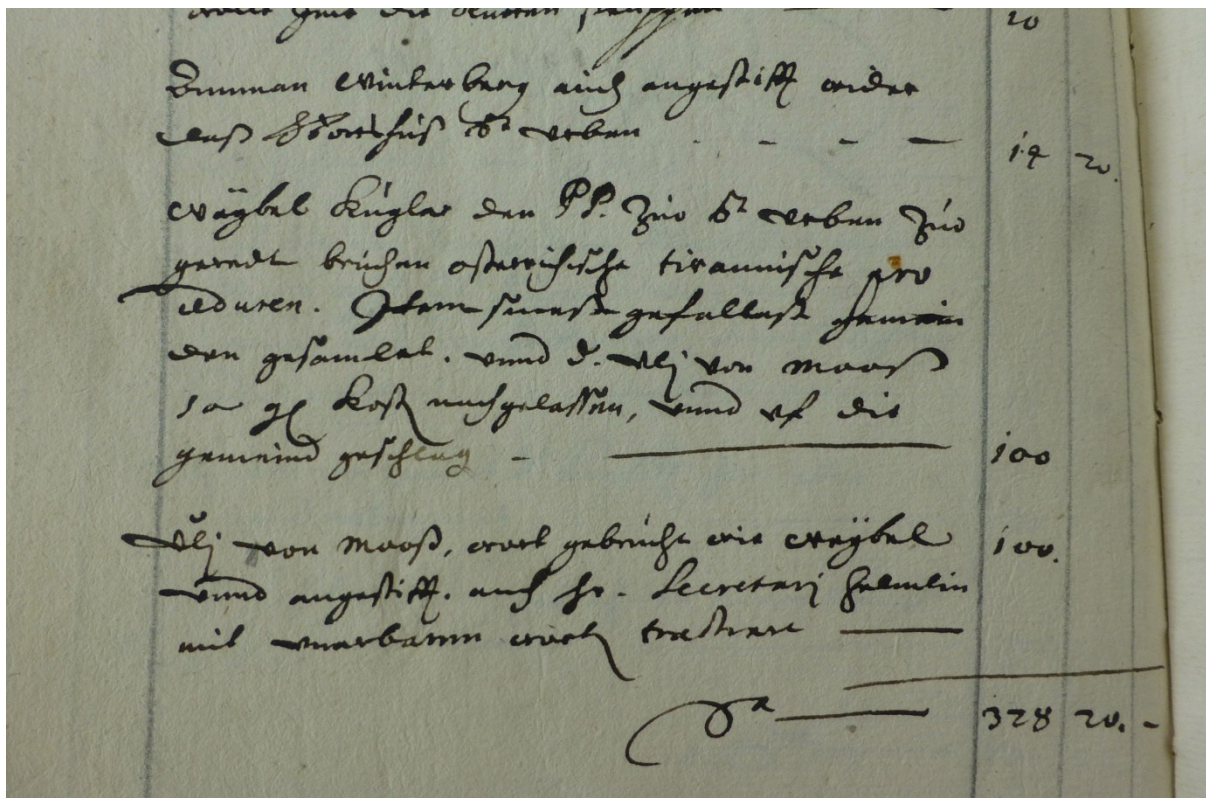 die
20
Winterberg auch angestifft wider
daß Gottshuß St. Vrben - - - — 14 20.
Weÿbel Kugler den PP. zuo St. Vrben zuo
geredt bruchen österrichische tirannische pro
ceduren. Item gemein
den gesamlet. vnnd d. Vlj von Mooß
10 gl kost nachgelassen, vnnd vf die
gemeind geschlag - — 100
Vlj von Mooß, wort gebrucht wie Weÿbel 100.
vnnd angestifft. auch hr. Secretarj Helmlin
mit wort tractiert —
Sa — 328 20. -